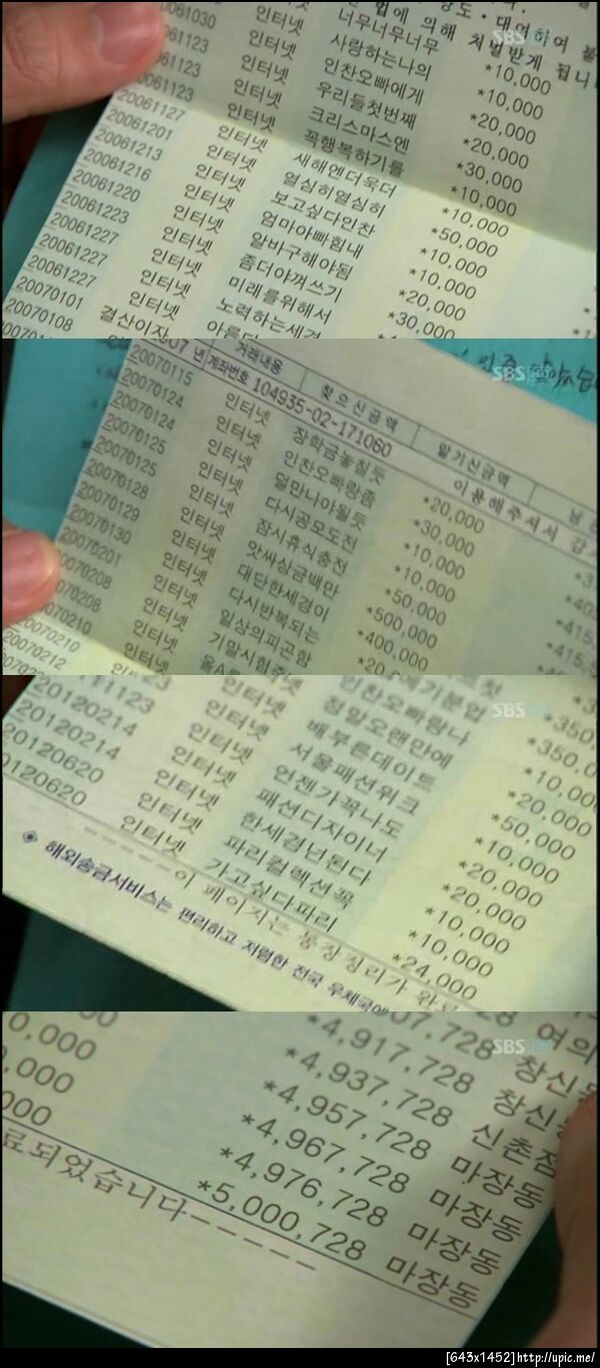 너무너무너무 *10,000
20061030 인터넷 사랑하는나의 *10,000
061123 인터넷 인찬오빠에게 *20,000
1123 인터넷 우리들첫번째 *20,000
20061123 인터넷 크리스마스엔 *30,000
20061127 인터넷 꼭행복하기를 *10,000
20061201 인터넷 새해엔더욱더 *10,000
20061213 인터넷 열심히열심히 *50,000
20061216 인터넷 보고싶다인찬 *10,000
20061220 인터넷 엄마아빠힘내 *10,000
20061223 인터넷 알바구해야됨 *20,000
20061227 인터넷 좀더아껴쓰기 *30,000
20061227 인터넷 미래를위해서
20061227 인터넷 노력하는세경
20070101 결산이자
20070108
법에 의해 처벌받게 됩니
SBS
거래내용 찾으신금액 맡기신금액
계좌번호 104935-02-171060 이용해주셔서 감
20070115 인터넷 장학금놓칠듯 *20,000
20070124 인터넷 인찬오빠랑좀 *30,000
20070124 인터넷 덜만나야될듯 *10,000
20070125 인터넷 다시공모도전 *10,000
20070125 인터넷 잠시휴식충전 *50,000
20070128 인터넷 앗싸상금백만 *500,000
20070129 인터넷 대단한세경이 *400,000
20070130 인터넷 다시반복되는
20070201 인터넷 일상의피곤함
20070208 인터넷
20070208
20070210
20070210
20070212
SBS
인터넷 인찬오빠랑나 *10,000
인터넷 정말오랜만에 *20,000
인터넷 배부른데이트 *50,000
인터넷 서울패션위크 *10,000
1123 인터넷 언젠가꼭나도 *20,000
20120214 인터넷 패션디자이너 *20,000
20120214 인터넷 한세경넌된다 *10,000
20120620 인터넷 파리컬렉션꼭 *10,000
0120620 인터넷 가고싶다파리 *24,000
-----이 페이지는 통장정리가 완료
◈ 해외송금서비스는 편리하고 저렴한 전국 우체국에
SBS
*4,917,728 창신동
*4,937,728 창신동
*4,957,728 신촌점
*4,967,728 마장동
*4,976,728 마장동
*5,000,728 마장동
료되었습니다-----
[643x1452]http://upic.me/